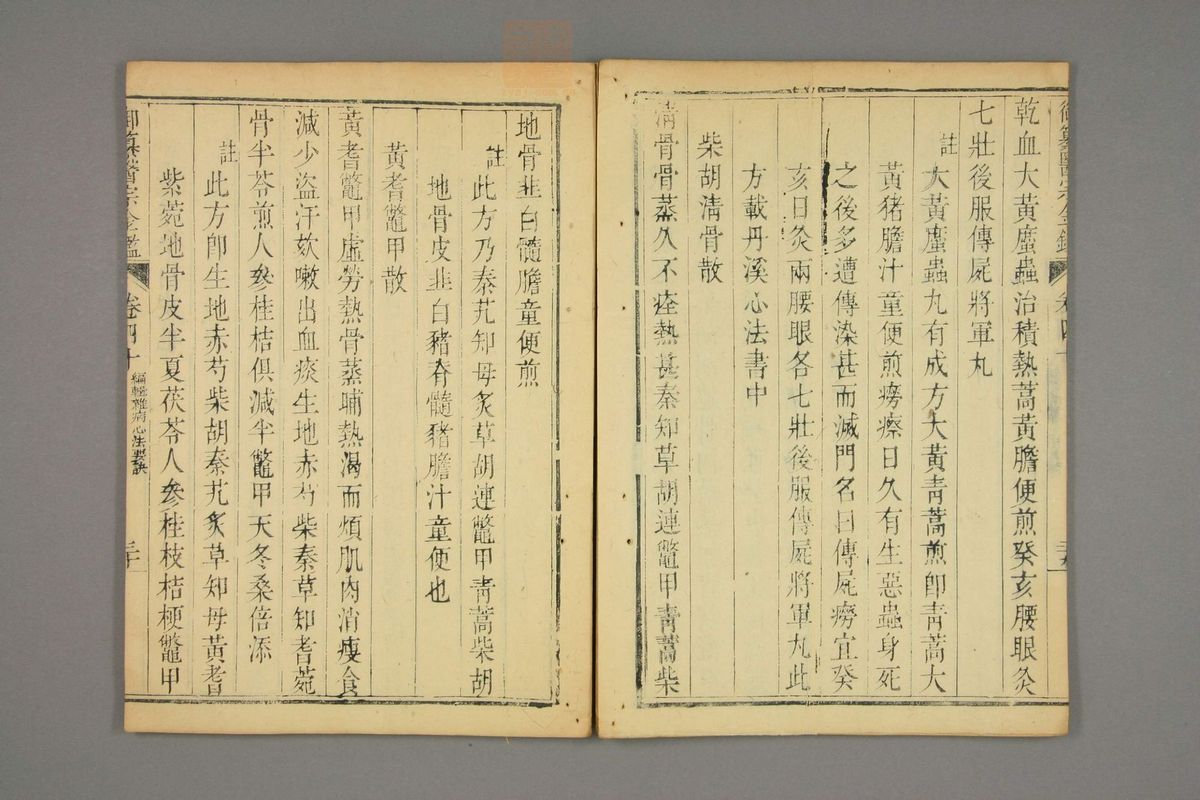 御纂醫宗金鑑 卷四十
乾血大黃䗪蟲治積熱蒿黃膽便煎癸亥腰眼灸
七壯後服傳屍將軍丸
註大黃䗪蟲丸有成方大黃青蒿煎卽青蒿大
黃猪膽汁童便煎癆瘵日久有生惡蟲身死
之後多遭傳染甚而滅門名曰傳屍癆宜癸
亥日灸兩腰眼各七壯後服傳屍將軍丸此
方載丹溪心法書中
柴胡清骨散
清骨骨蒸久不痊熱甚秦知草胡連鼈甲青蒿柴
地骨韭白髓膽童便煎
註此方乃秦艽知母炙草胡連鼈甲青蒿柴胡
地骨皮韭白豬脊髓豬膽汁童便也
黃耆鼈甲散
黃耆鼈甲虛勞熱骨蒸晡熱渴而煩肌肉消瘦食
減少盜汗欬嗽出血痰生地赤芍柴秦草知耆菀
骨半苓煎人參桂桔俱減半鼈甲天冬桑倍添
註此方卽生地赤芍柴胡秦艽炙草知母黃耆
紫菀地骨皮半夏茯苓人參桂枝桔梗鼈甲
御纂醫宗金鑑 卷四十 編輯雜病心法要訣